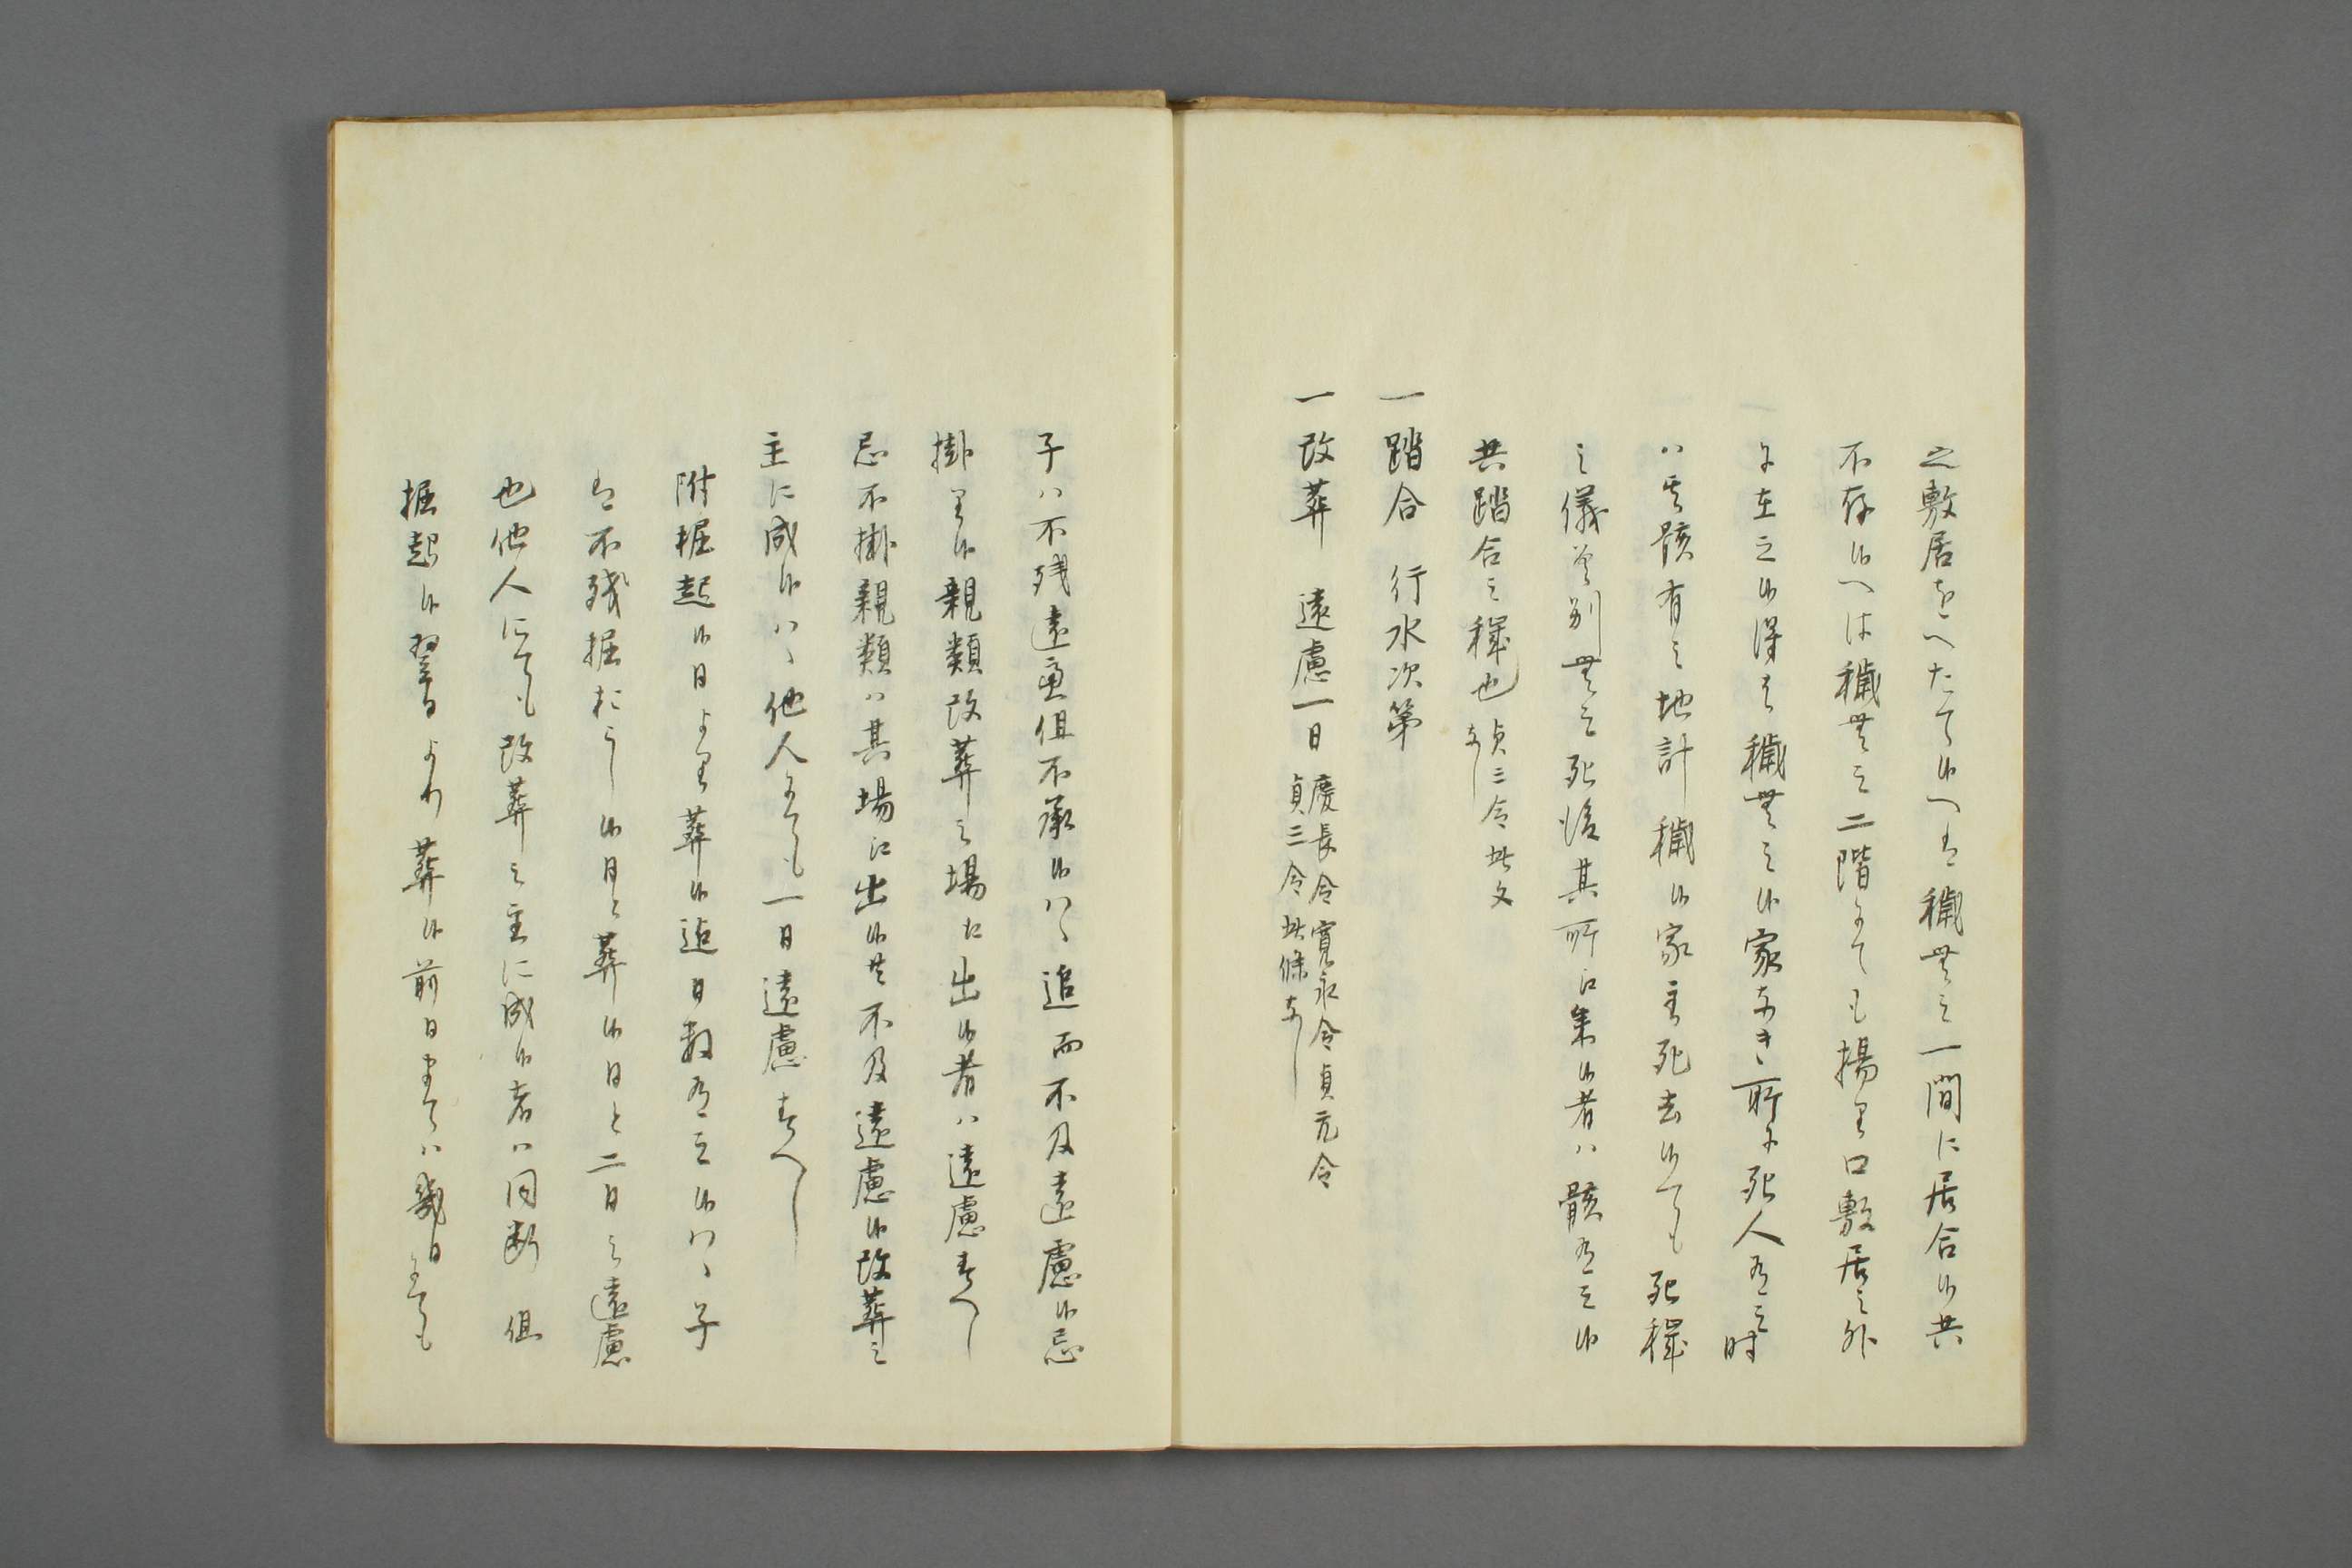 之敷居をへたて候へは穢無之一間に居合候共
不存候へは穢無之二階にても揚り口敷居之外
に在之候得は穢無之候家なき所に死人有之時
ハ其骸有之地計穢候家主死去候ても死穢
之儀差別無之死後其所江来候者ハ骸有之候
共踏合之穢也 貞三令此文なし
一踏合 行水次第
一改葬 遠慮一日 慶長令寛永令貞元令
貞三令此條なし
子ハ不残遠慮但不承候ハヽ追而不及遠慮候忌
掛り候親類改葬之場江出候者ハ遠慮すへし
忌不掛親類ハ其場江出候共不及遠慮候改葬之
主に成候ハヽ他人にても一日遠慮すへし
附掘起候日より葬候迄日数有之候ハヽ子
は不残掘おこし候日と葬候日と二日之遠慮
也他人にても改葬之主に成候者ハ同断 但
掘起候翌日より葬候前日まてハ幾日にても